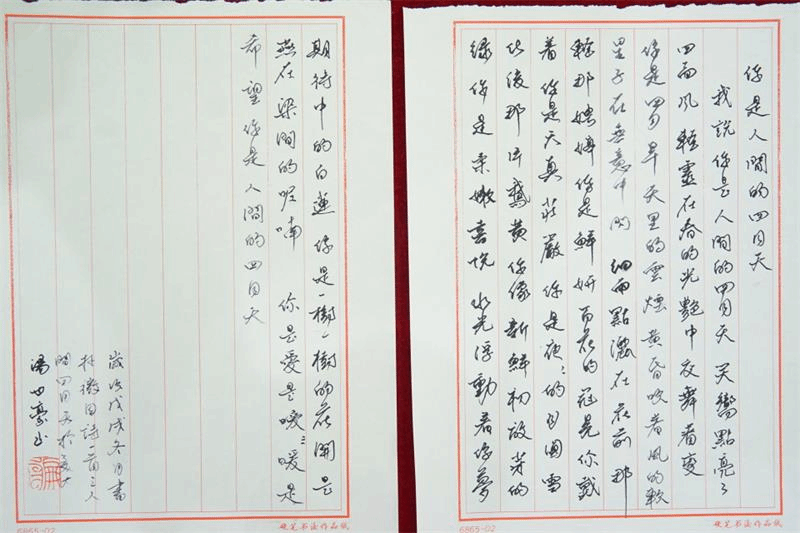 你是人間的四月天
我説你是人間的四月天 笑響點亮了
四面風輕靈在春的光艷中交舞着變
你是四月早天里的雲煙黄昏吹着風的軟
星子在無意中閃 細雨點灑在花前 那
輕那娉婷你是鮮妍百花的冠冕你戴
着你是天真莊嚴你是夜〻的月圓雪
化後那片鵝黄你像新鮮初放芽的
緑你是柔嫩喜悦水光浮動着你夢
6865-02
硬笔书法作品纸
期待中的白蓮你是一樹一樹的花開是
燕在梁間的呢喃 你是愛是暖〻暖是
希望你是人間的四月天
歲次戊戌冬月書
林徽因詩一首之人
間四月天於
湯
6865-02
硬笔书法作品纸